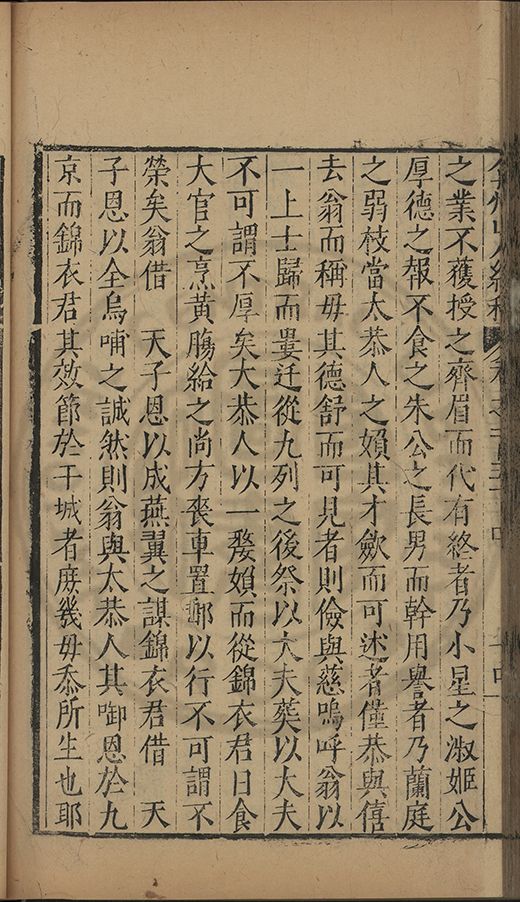 之業不獲授之齊眉而代有終者乃小星之淑姬公
厚德之報不食之朱公之長男而幹用譽者乃蘭庭
之弱枝當太恭人之嬪其才歛而可述者僅恭與僖
去翁而稱毋其德舒而可見者則儉與慈嗚呼翁以
一上士歸而婁迁從九列之後祭以大夫葬以大夫
不可謂不厚矣大恭人以一婺嬪而從錦衣君日食
大官之烹黃膓給之尚方喪車置郵以行不可謂不
榮矣翁借 天子恩以成燕翼之謀錦衣君借 天
子恩以全烏哺之誠然則翁與太恭人其啣恩於九
京而錦衣君其效節於干城者庶幾毋忝所生也耶